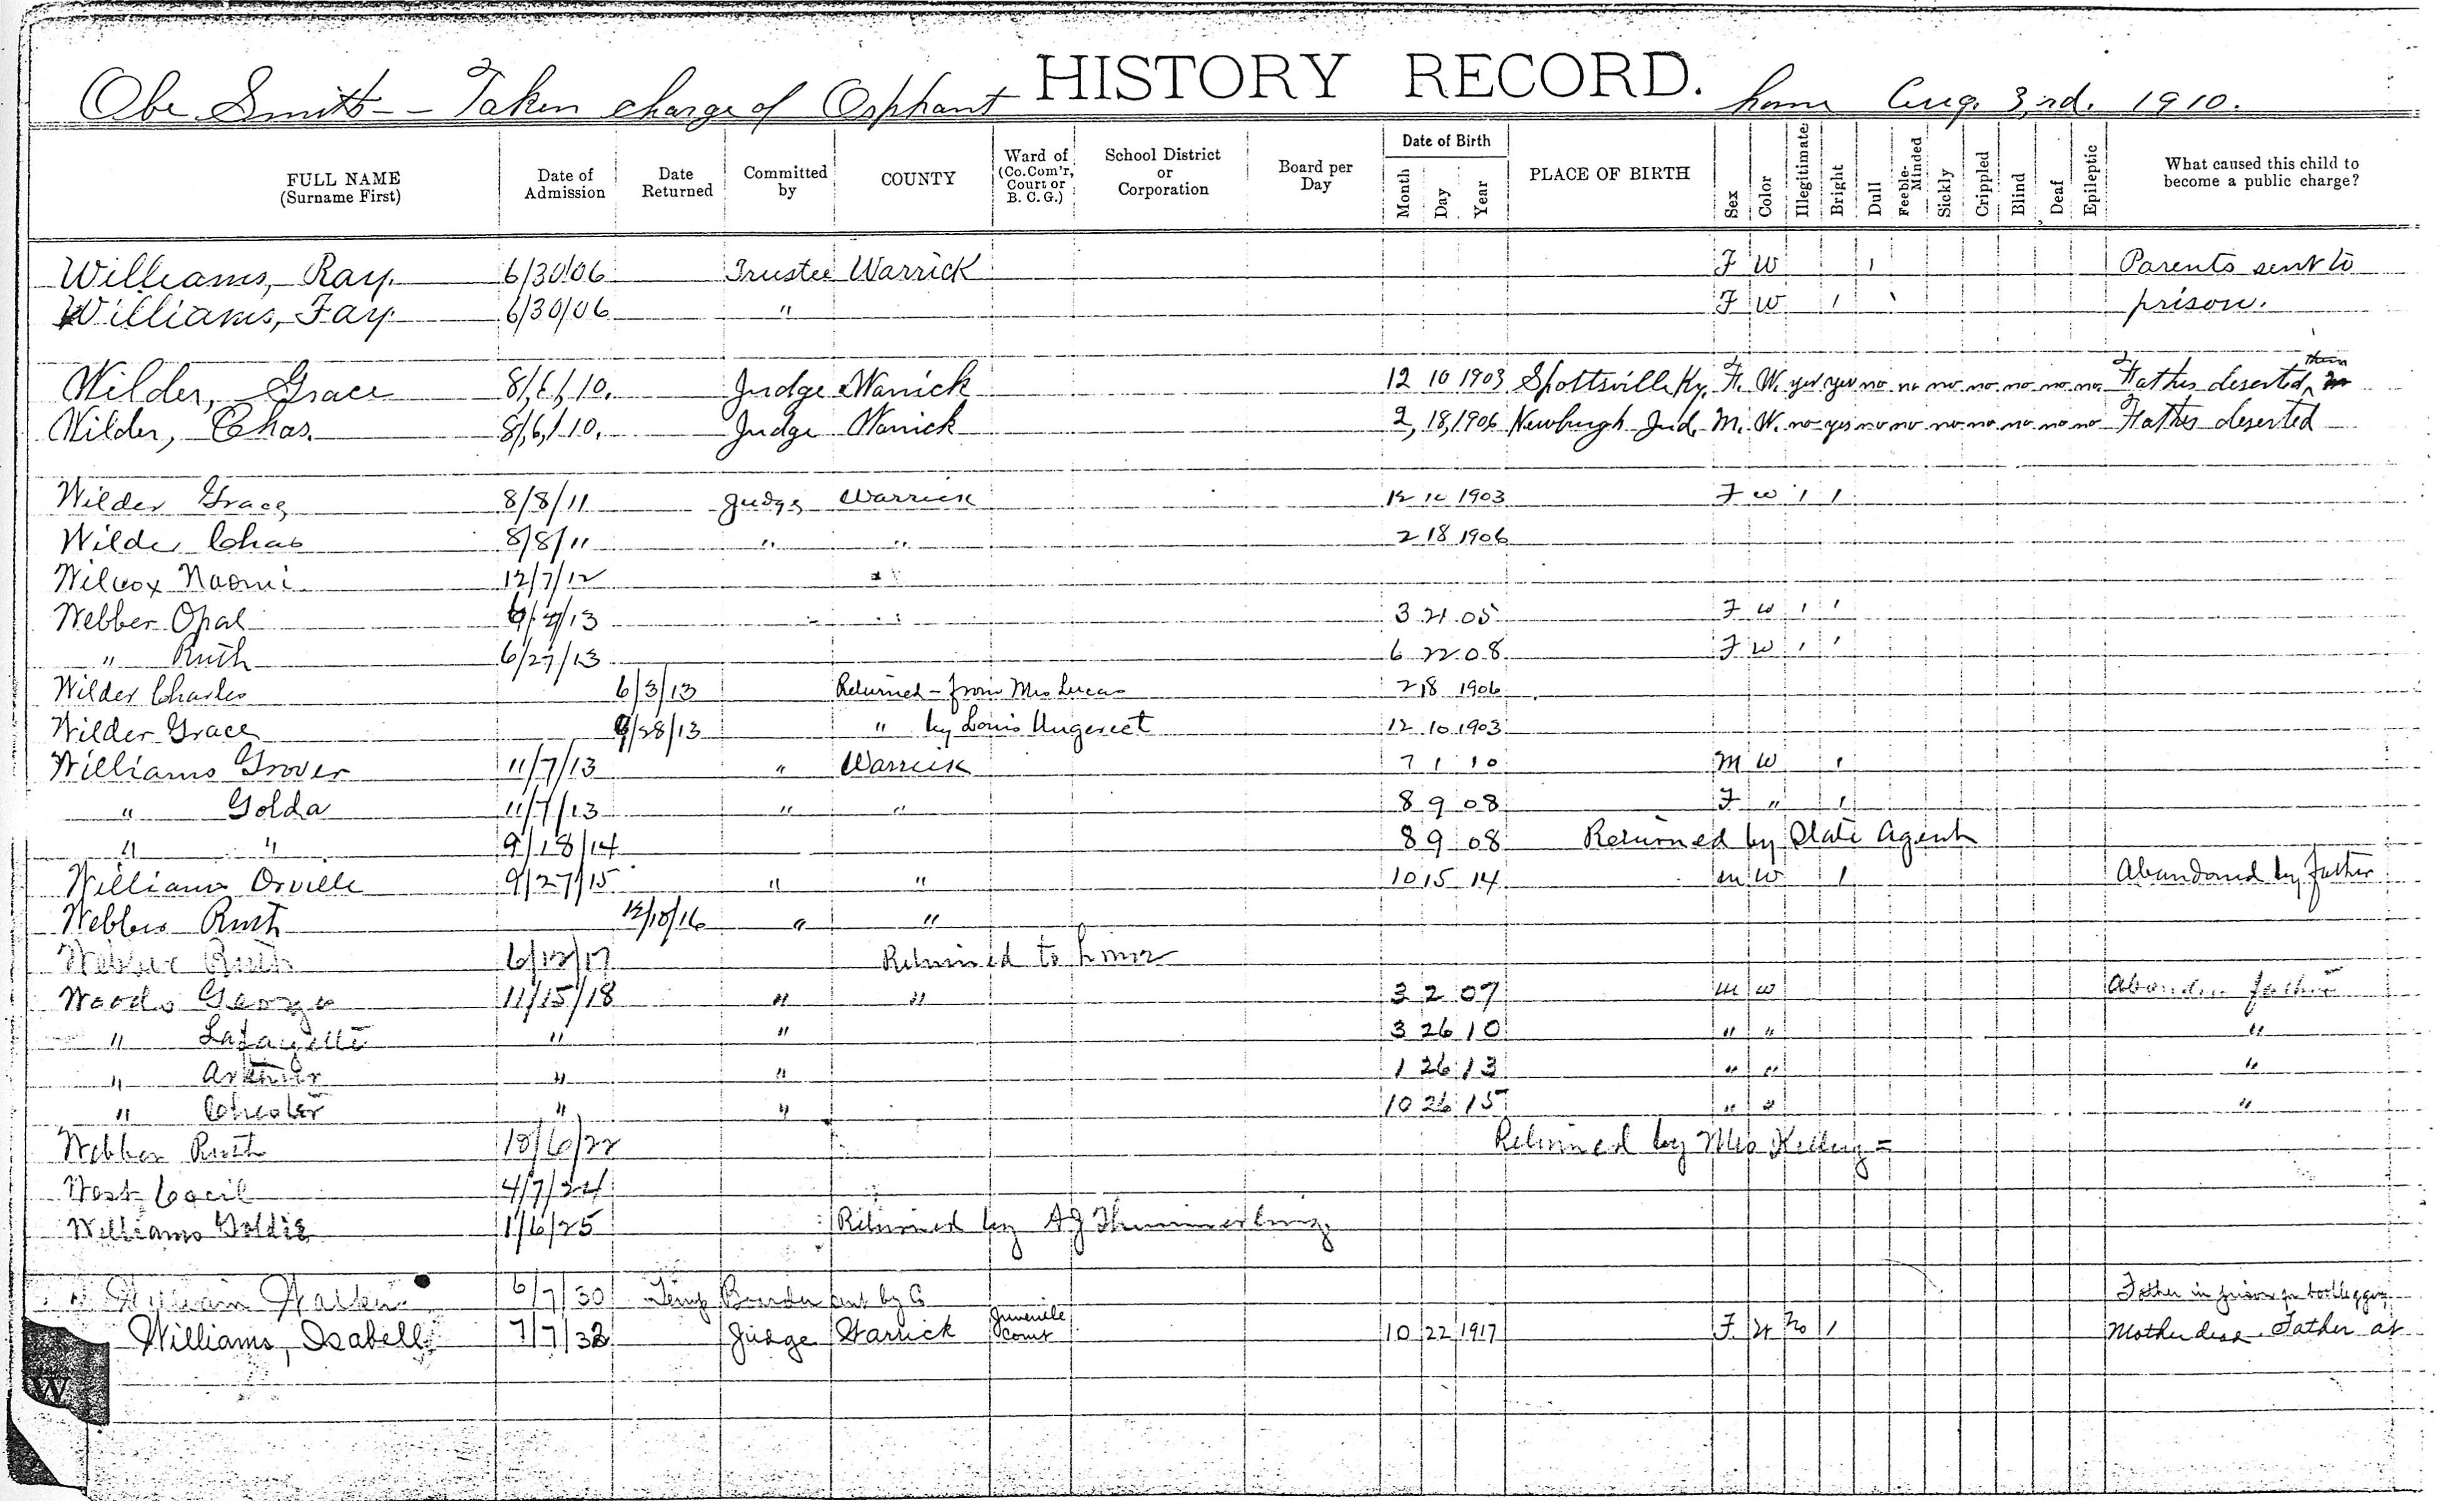 HISTORY RECORD.
Obe Smith - Taken charge of Orphant home Aug. 3rd. 1910.
FULL NAME (Surname First) Date of Admission Date Returned Committed by COUNTY Ward of (Co.Com'r, Court or B. C. G.) School District or Corporation Board per Day Date of Birth Month Day Year PLACE OF BIRTH Sex Color Illegitimate Bright Dull Feeble-Minded Sickly Crippled Blind Deaf Epileptic What caused this child to become a public charge?
Williams, Ray. 6/30/06 Trustee Warrick F W ı Parents sent to
Williams, Fay. 6/30/06 " F W ı prison.
Wilder, Grace 8/6/10. Judge Warrick 12 10 1903 Spottsville Ky. F. W. yes yes no no no no no no no Father deserted them
Wilder, Chas. 8/6/10. Judge Warrick 2, 18, 1906 Newburgh Ind. M. W. no yes no no no no no no no Father deserted
Wilder Grace 8/8/11 Judge Warrick 12 1903 F W ı ı
Wilder Chas 8/8/11 " " 2 18 1906
Wilcox Naomi 12/7/12 "
Webber Opal /13 3 21 05 F W ı ı
" Ruth 6/27/13 6 22 08 F W ı ı
Wilder Charles 6/3/13 Returned - from Mrs Lucas 2 18 1906
Wilder Grace /28/13 " by Louis 12 10 1903
Williams Grover 11/7/13 " Warrick 7 1 10 M W ı
" Golda 11/7/13 " " 8 9 08 F " ı
" " 9/18/14 8 9 08 Returned by State Agent
Williams Orville 9/27/15 " " 10 15 14 M W ı Abandoned by father
Webber Ruth 12/10/16 " "
Webber Ruth 6/12/17 Returned to home
Woods George 11/15/18 " " 3 2 07 M W father
" Lafayette " " 3 26 10 " " "
" Arthur " " 1 26 13 " " "
" Chester " " 10 26 15 " " "
Webber Ruth 10/6/22 Returned by Mrs
West Cecil 4/7/24
Williams Goldie 1/6/25 Returned by AJ
William 6/7/30 Temp Boarder by Father in prison for bootlegging,
Williams, Isabell 7/7/32 Judge Warrick Juvenile Court 10 22 1917 F W no ı Mother dead. Father at
W